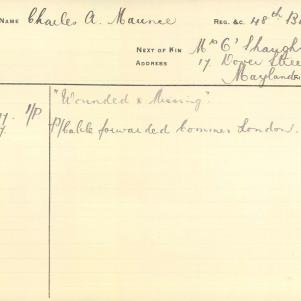 NAME Charles A. Maunce REG. &C. 48th Ba
NEXT OF KIN Mrs O'Shaugh
ADDRESS 17 Dover Stree
Maylands
"Wounded & Missing".
17. I/P
7. P/Cable forwarded Commes London.